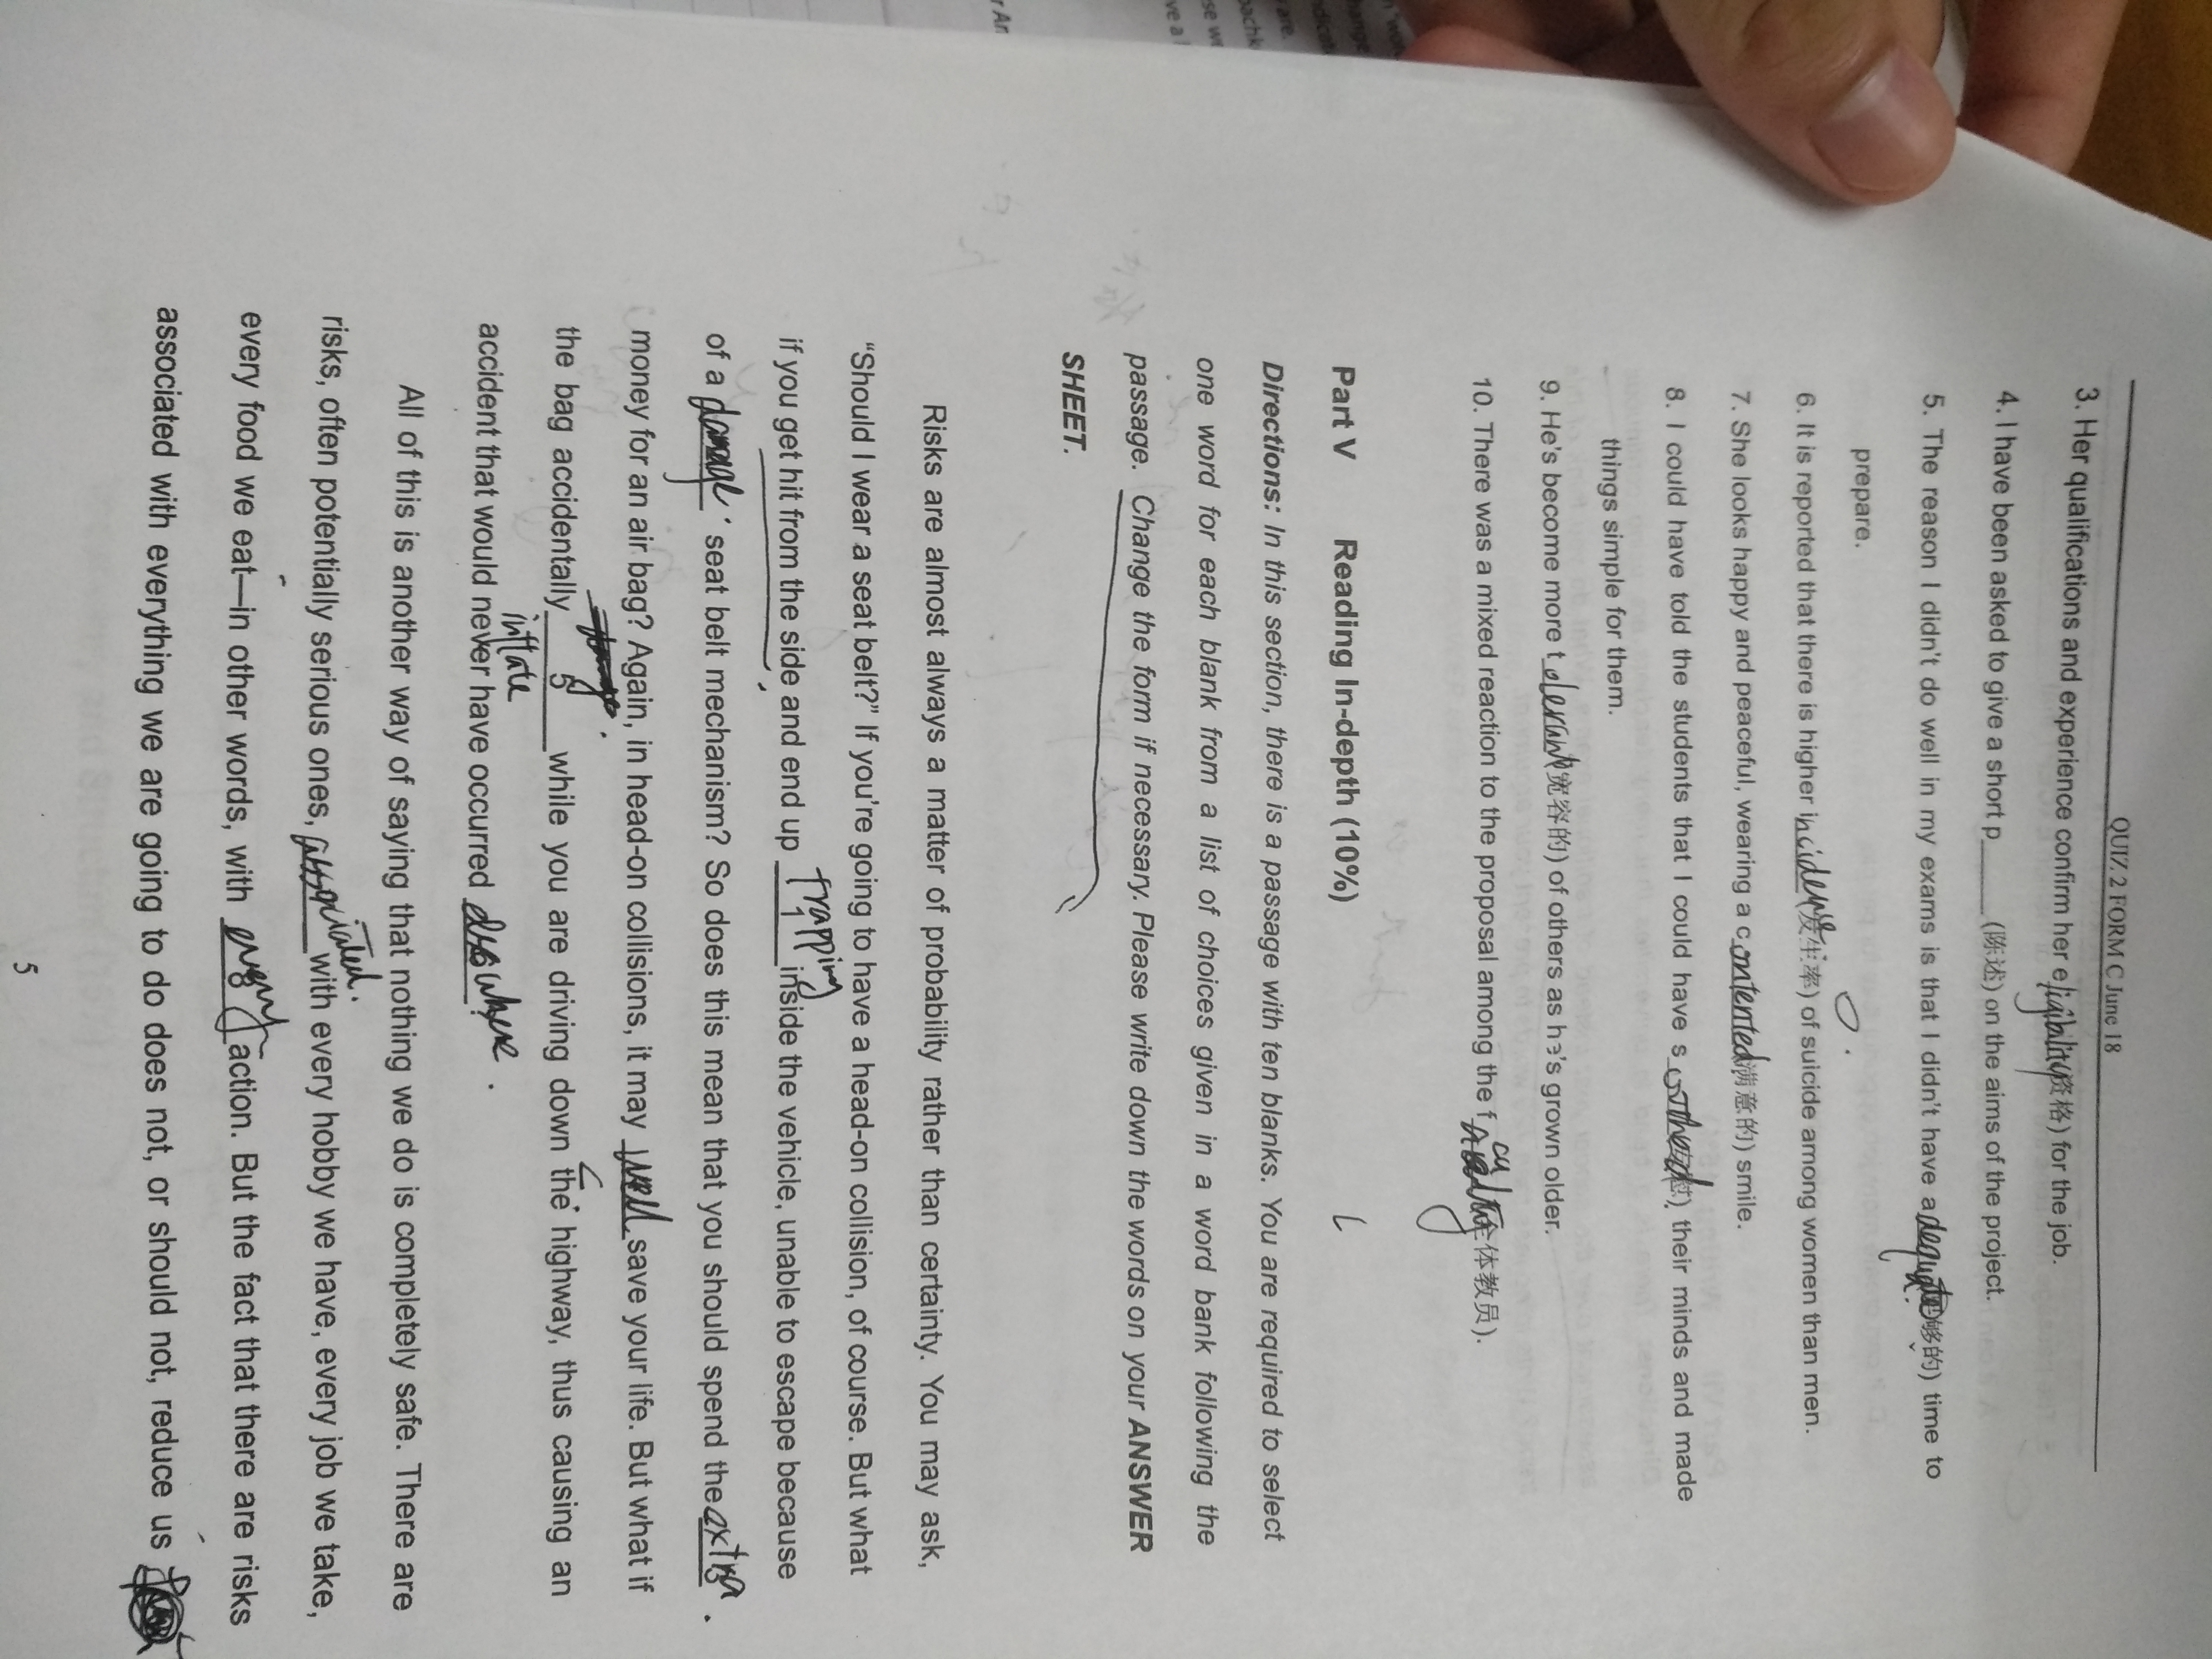 QUIZ 2 FORM C June 18
3. Her qualifications and experience confirm her eligibility资格) for the job.
4. I have been asked to give a short p_____ (陈述) on the aims of the project.
5. The reason I didn't do well in my exams is that I didn't have adequate够的)) time to
prepare.
6. It is reported that there is higher incidence发生率) of suicide among women than men.
7. She looks happy and peaceful, wearing a contented满意的)) smile.
8. I could have told the students that I could have s their minds and made
things simple for them.
9. He's become more tolerant宽容的) of others as he's grown older.
10. There was a mixed reaction to the proposal among the faculty全体教员).
Part V Reading In-depth (10%)
Directions: In this section, there is a passage with ten blanks. You are required to select
one word for each blank from a list of choices given in a word bank following the
passage. Change the form if necessary. Please write down the words on your ANSWER
SHEET.
Risks are almost always a matter of probability rather than certainty. You may ask,
“Should I wear a seat belt?” If you're going to have a head-on collision, of course. But what
trapping
if you get hit from the side and end up 1 inside the vehicle, unable to escape because
of a damage seat belt mechanism? So does this mean that you should spend the extra
money for an air bag? Again, in head-on collisions, it may well save your life. But what if
the bag accidentally 5 while you are driving down the highway, thus causing an
inflate
accident that would never have occurred elsewhere .
All of this is another way of saying that nothing we do is completely safe. There are
risks, often potentially serious ones, associated with every hobby we have, every job we take,
every food we eat—in other words, with every 8 action. But the fact that there are risks
associated with everything we are going to do does not, or should not, reduce us
5